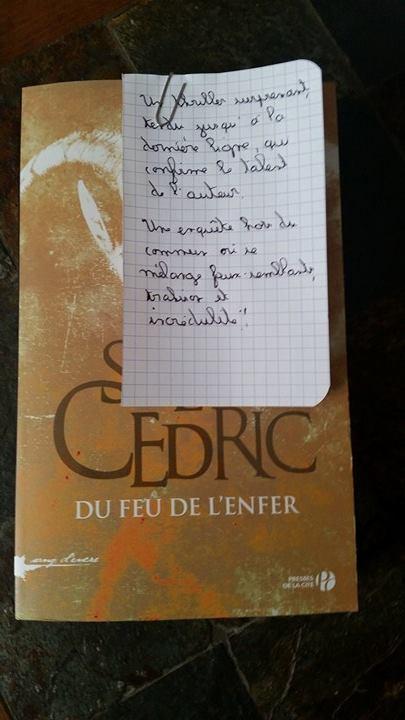 Un thriller surprenant,
tendu jusqu'à la
dernière ligne, qui
confirme le talent
de l'auteur.
Une enquête hors du
commun où se
mélange faux-semblants,
trahison et
incrédulité!
S
CEDRIC
DU FEU DE L'ENFER
sang d'encre
PRESSES
DE LA CITÉ